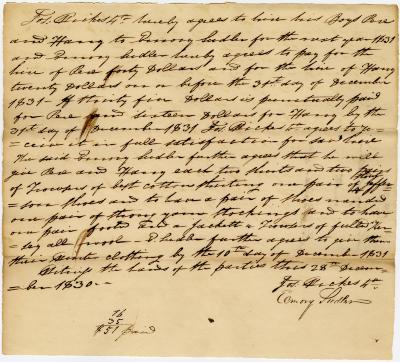 Jos. Rickes 4th hereby agrees to hire his Boys Pere
and Hany to Emory Sudler for the next year 1831
and Emory Sudler hereby agrees to pay for the
hire of Pere forty Dollars and for the hire of Hany
twenty Dollars on or before the 31st day of December
1831 - If thirty five Dollars is punctually paid
for Pere and sixteen Dollars for Hany by the
31st day of December 1831 Jos. Rickes 4th agrees to re=
ceive it in full satisfaction for said hire
The said Emory Sudler further agrees that he will
give Pere and Hany each two shirts and two
of Trowsers of best cotton shirting one pair
shoes and to have a pair of shoes mended
one pair of strong yarn stockings and to have
one pair and a Jackett & Trowsers of fulled Ker=
sey all wool - E Sudler further agrees to give them
their winter clothing by the 10th day of December 1831
the hands of the parties this 28th Decem=
ber 1830.-
Jos. Rickes 4th.
Emory Sudler
16
35
$51 paid